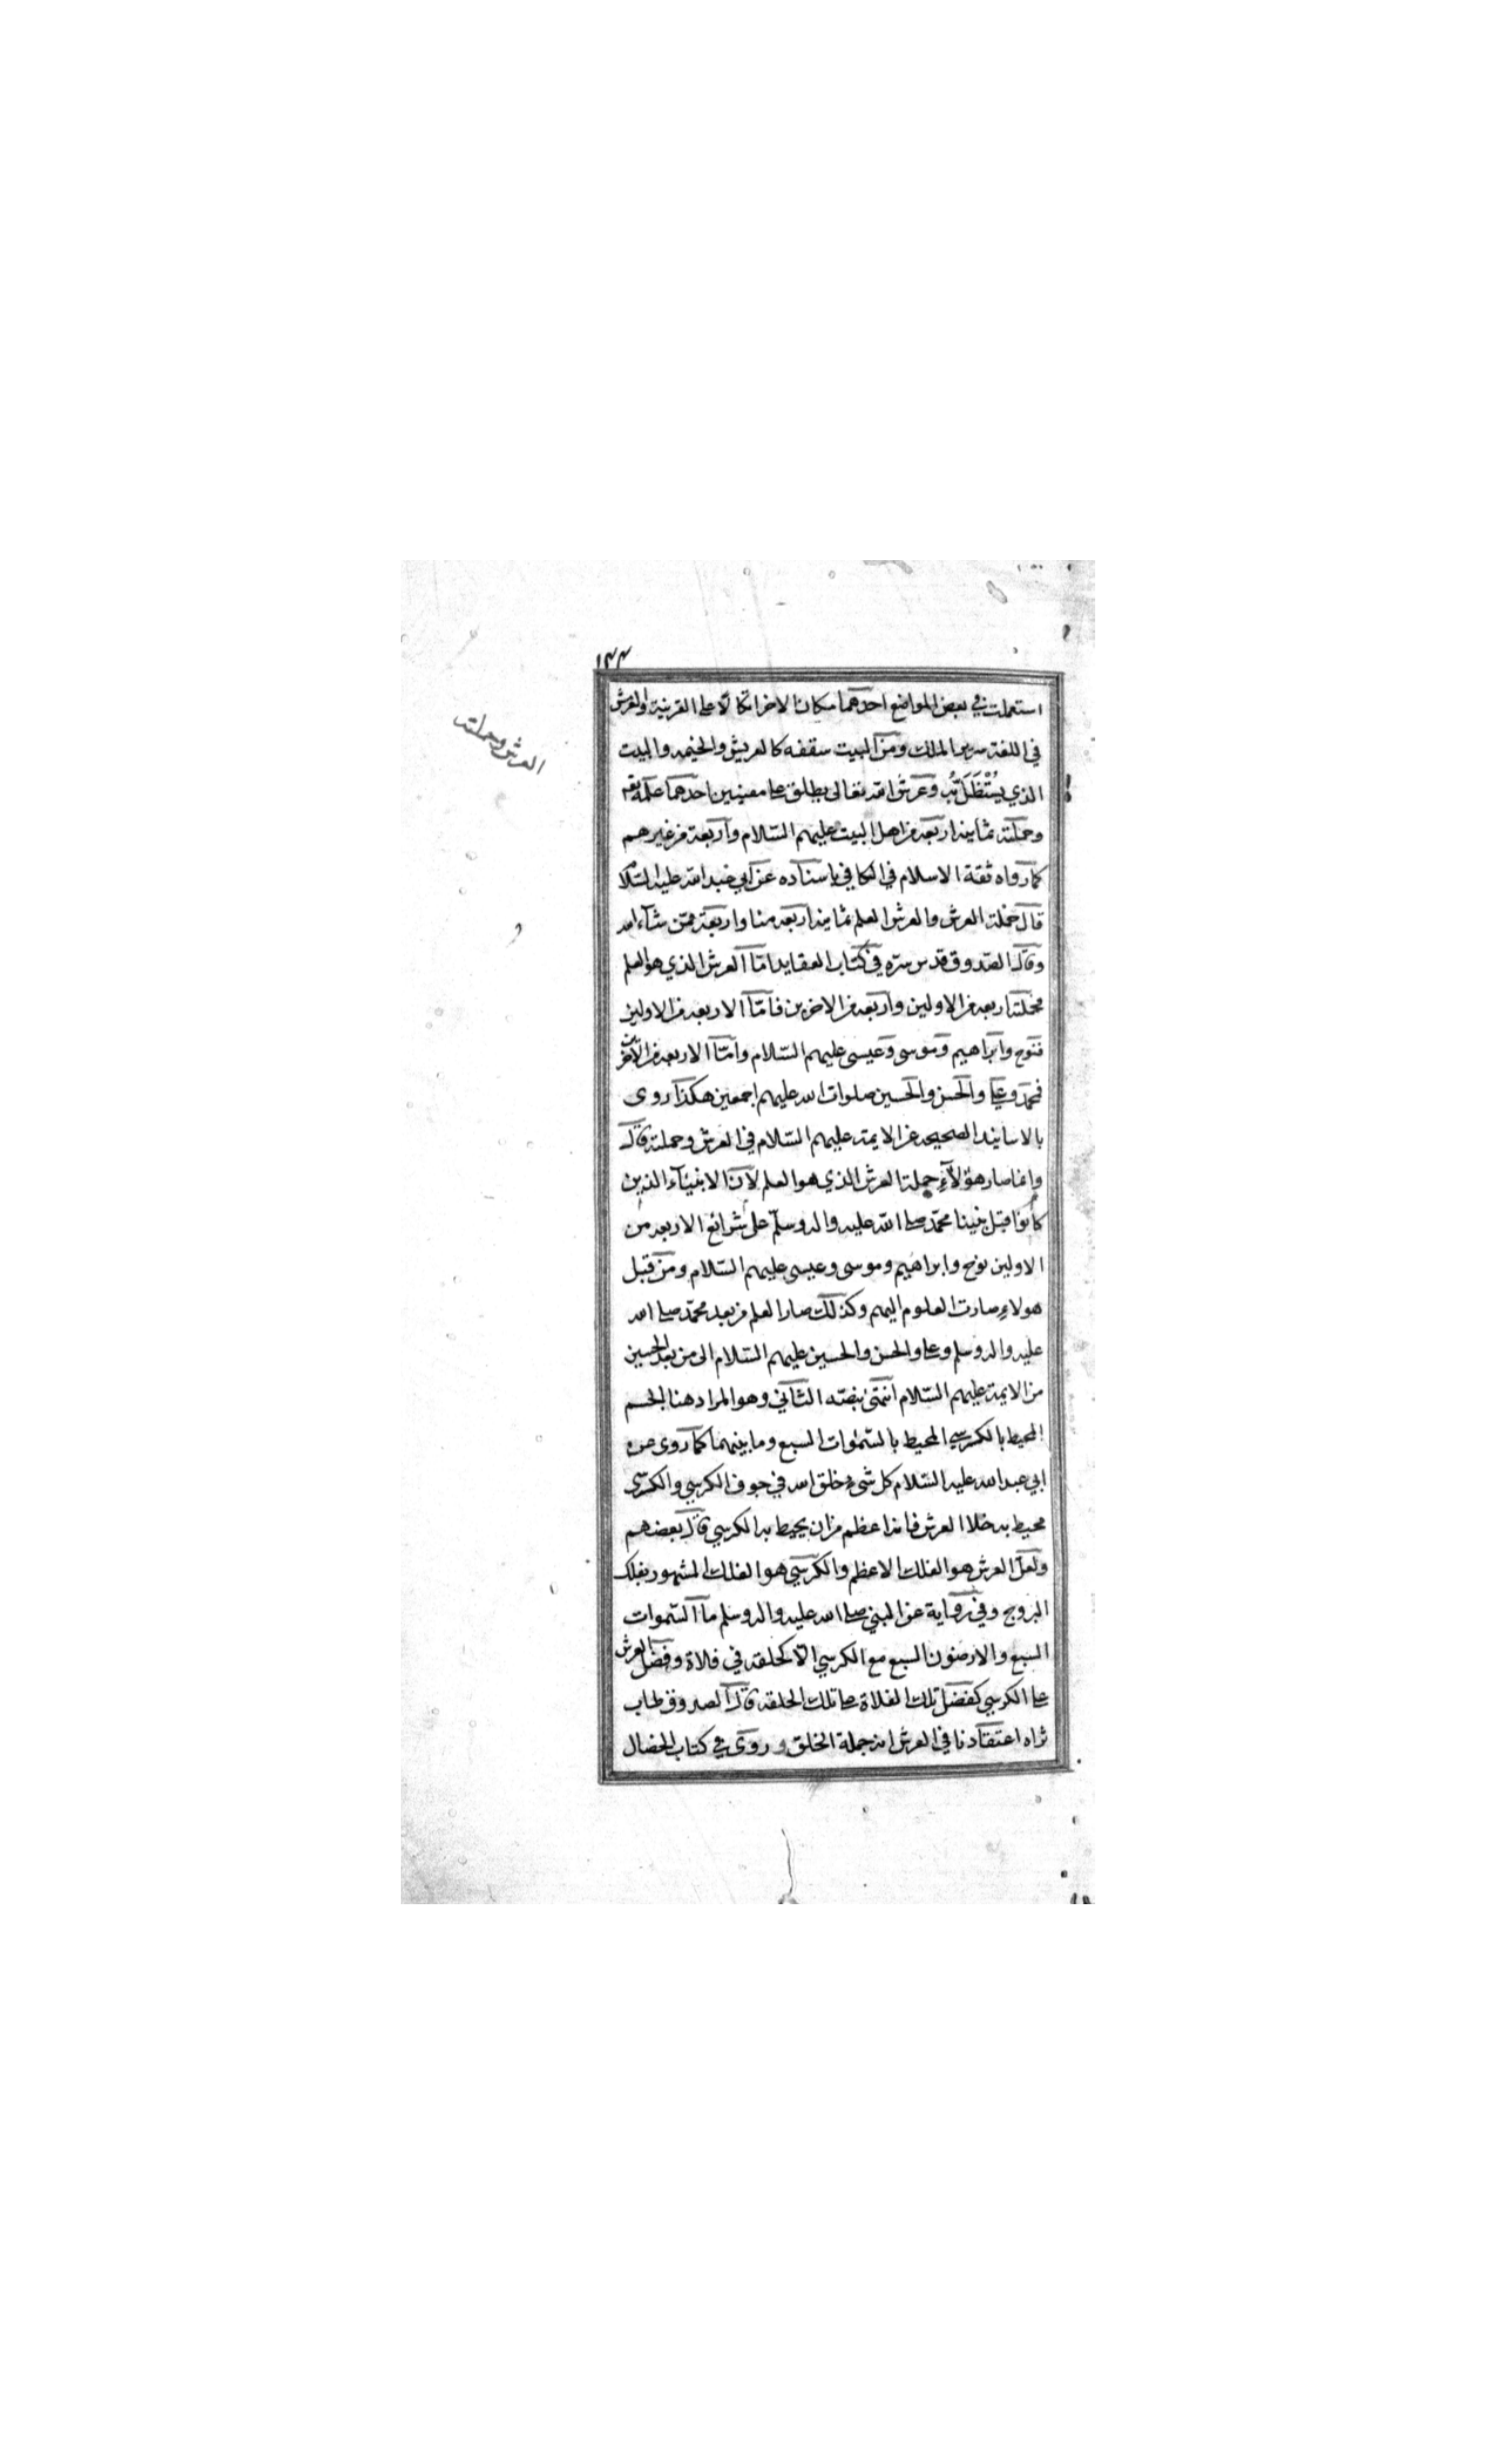 ١٤٤
استعملت في بعض المواضع احدهما مكان الاخر اتكالا على القرينة والعرش
في اللغة سرير الملك ومن البيت سقفه كالعريش والخيمه والبيت
الذي يُسْتَظَلّ بُه وعرش الله تعالى يطلق على معنيين احدهما علمه تعه
وحملته ثمانيه اربعه من اهل البيت عليهم السّلام واربعة من غيرهم
كما رواه ثقة الاسلام في الكافي باسناده عن ابي عبد الله عليه السّلام
قال حملة العرش والعرش العلم ثمانيه اربعه منا واربعة ممّن شاء الله
وقال الصّدوق قدس سرّه في كتاب العقايد امّا العرش الذي هو العلم
فحملته اربعه من الاولين واربعه من الاخرين فامّا الاربعه من الاولين
فنوح وابراهيم وموسى وعيسى عليهم السّلام وامّا الاربعه من الآخرين
فمحمّد وعلي والحسن والحسين صلوات الله عليهم اجمعين هكذا روى
بالاسانيد الصحيحه عن الايمه عليهم السّلام في العرش وحملته قال
وانما صار هؤلآءِ حملة العرش الذي هو العلم لانّ الانبياء الذين
كانوا قبل نبينا محمّد صلى الله عليه واله وسلّم على شرائع الاربعه من
الاولين نوح وابراهيم وموسى وعيسى عليهم السّلام ومن قبل
هولاءِ صارت العلوم اليهم وكذلك صار العلم من بعد محمّد صلى الله
عليه واله وسلم وعلى والحسن والحسين عليهم السّلام الى من بعد الحسين
من الايمة عليهم السّلام انتهى بنصّه الثاني وهو المراد هنا الجسم
المحيط بالكرسي المحيط بالسّموات السبع وما بينهما كما روى عن
ابي عبد الله عليه السّلام كل شىء خلق الله في جوف الكرسي والكرسى
محيط به خلا العرش فانه اعظم من ان يحيط به الكرسي قال بعضهم
ولعلّ العرش هو الفلك الاعظم والكرسي هو الفلك المشهور بفلك
البروج وفي رواية عن النبي صلى الله عليه واله وسلم ما السّموات
السبع والارضون السبع مع الكرسي الّا كحلقه في فلاة وفضل العرش
على الكرسي كفضل تلك الفلاة على تلك الحلقه قال الصدوق طاب
ثراه اعتقادنا في العرش انه جملة الخلق وروى في كتاب الخصال
العرش وحملته